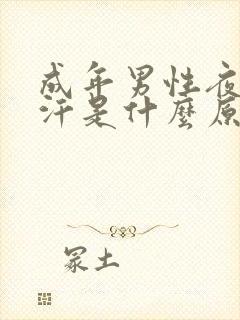 成年男性夜
汗是什麼原
冢土